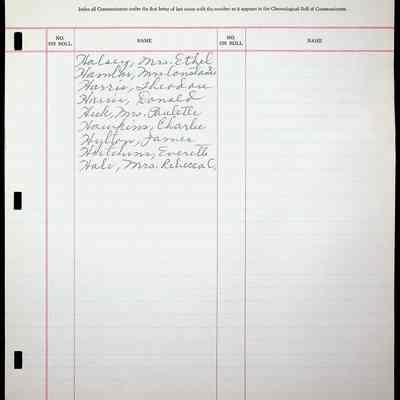 Index all Communicants under the first letter of last name with the number as it appears in the Chronological Roll of Communicants.
NO. ON ROLL NAME NO. ON ROLL NAME
Halsey, Mrs. Ethel
Hamlin, Mrs. Constance
Harris, Theodore
Harris, Donald
Heck, Mrs. Paulette
Hawkins, Charlie
Hylton, James
Hutchins, Everette
Hale, Mrs. Rebecca C.